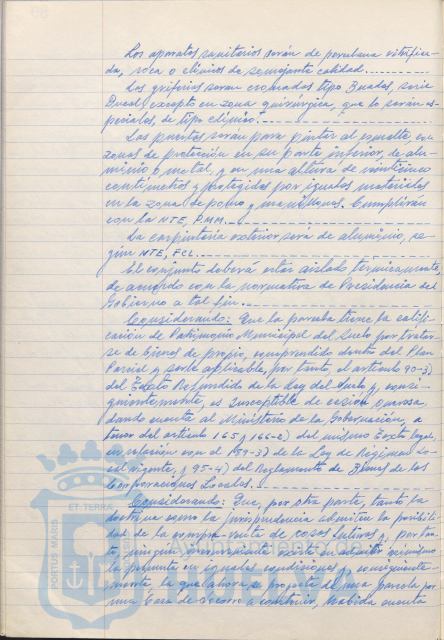 Los aparatos sanitarios serán de porcelana vitrifica-
da, roca o clínicos de semejante calidad.
Las griferías serán cromadas tipo Buades, serie
Ducal, excepto en zona quirúrgica, que lo serán es-
peciales, de tipo clínico.
Las puertas serán para pintar al esmalte, con
zonas de protección en su parte inferior, de alu-
minio o metal, y en una altura de veinticinco
centímetros y protegidas por iguales materiales
en la zona de pomo y manillones. Cumplirán
con la NTE, PMM.
La carpintería exterior será de aluminio, se-
gún NTE, FCL.
El conjunto deberá estar aislado termicamente,
de acuerdo con la normativa de Presidencia del
Gobierno a tal fin.
Considerando: Que la parcela tiene la califi-
cación de Patrimonio Municipal del Suelo por tratar-
se de bienes de propio, comprendido dentro del Plan
Parcial y serle aplicable, por tanto, el artículo 90-3)
del Texto Refundido de la Ley del Suelo y, consi-
guientemente, es susceptible de cesión onerosa,
dando cuenta al Ministerio de la Gobernación, a
tenor del artículo 165 y 166-2) del mismo Texto legal,
en relación con el 189-3) de la Ley de Régimen Lo-
cal vigente, y 95-4) del Reglamento de Bienes de las
Corporaciones Locales.
Considerando: Que, por otra parte, tanto la
doctrina como la jurisprudencia admiten la posibili-
dad de la compra-venta de cosas futuras y, por tan-
to, ningún inconveniente existe en admitir asimismo
la permuta en iguales condiciones y, consiguiente-
mente la que ahora se proyecta de una parcela por
una Casa de Socorro a construir, habida cuenta
ET TERRA
PORTUS MARIS